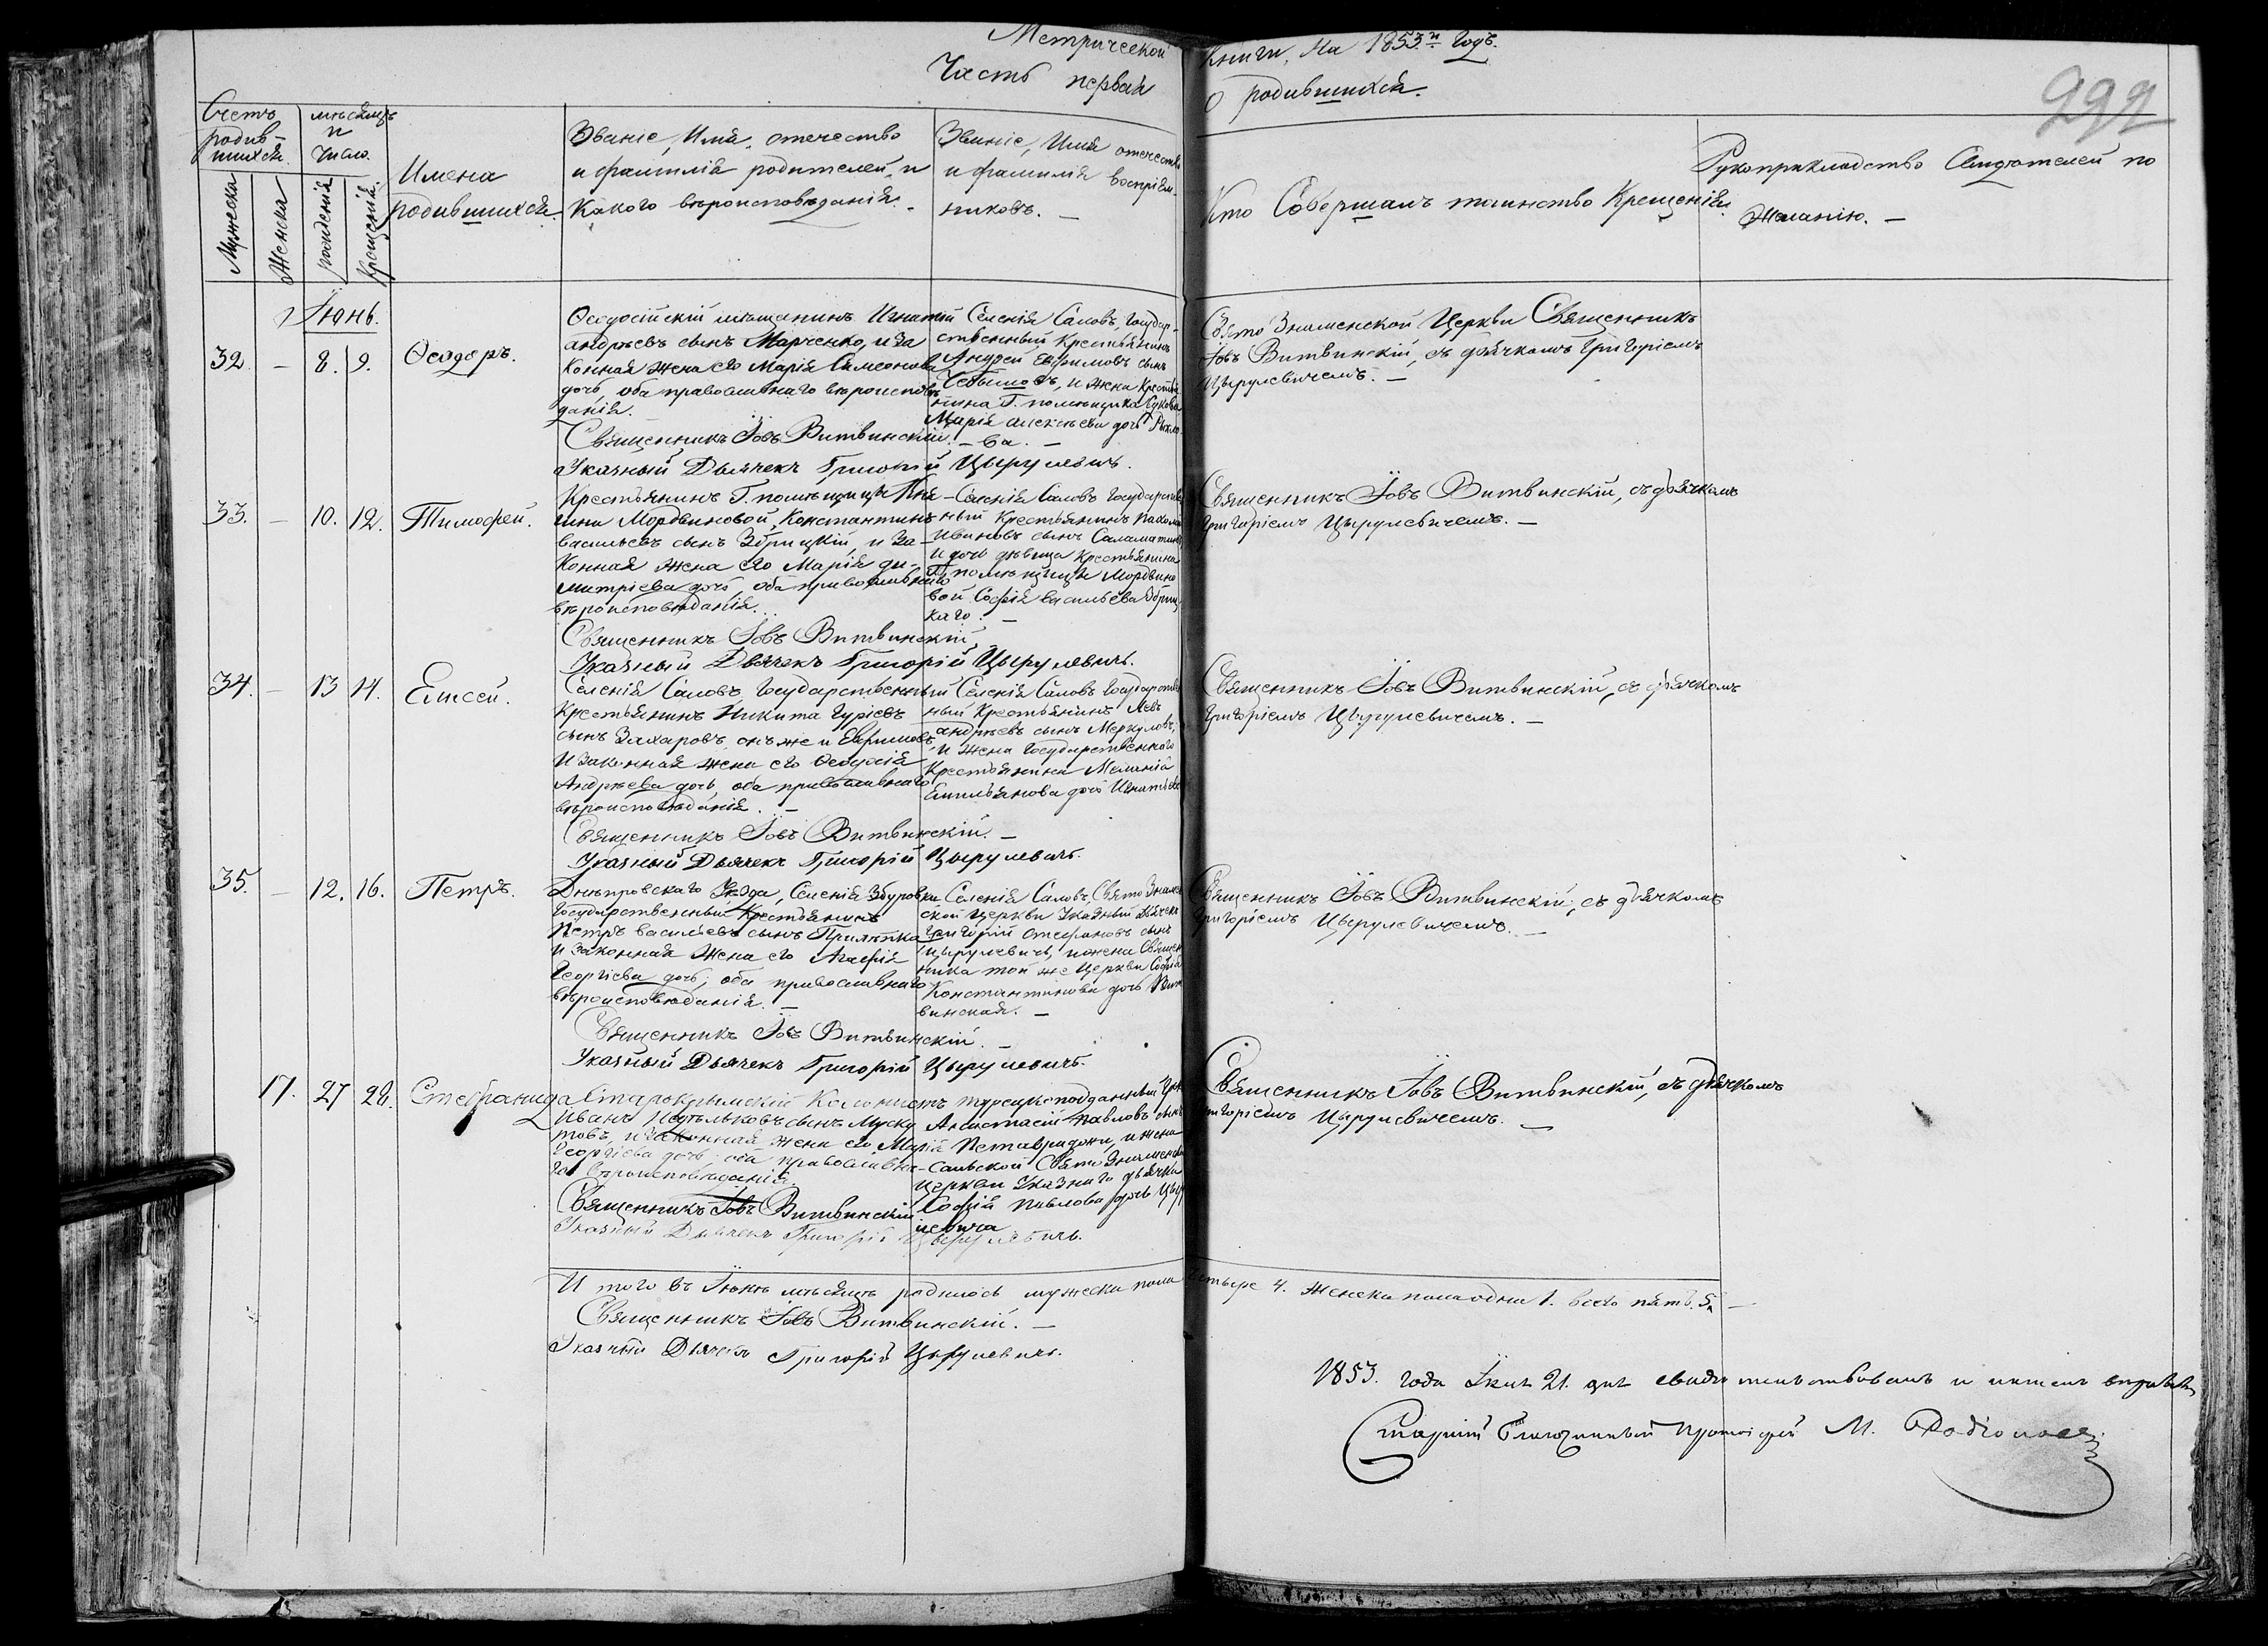 Метрической
Часть первая
Книги, На 1853й Годъ.
О родившихся.
292
Счетъ родив-шихся.
Мужеска
Женска
мѣсяцъ и число.
рожденія
Крещенія.
Имена
родившихся.
Званіе, Имя, отечество
и фамилія родителей, и
Какого вѣроисповѣданія. -
Званіе, Имя отечество
и фамилія воспріем-
никовъ. —
Кто Совершалъ таинство Крещенія.
Рукоприкладство Свидѣтелей по
Желанію. —
Іюнь.
32. — 8. 9. Ѳеодоръ.
Ѳеодосійскій мѣщанинъ Игнатій
андрѣевъ сынъ Марченко, и за
Конная жена его Марія Симеонова
дочь, оба православнаго вѣроисповѣ
данія.
Селенія Саловъ, Государ-
ственный Крестьянинъ
Андрей Евфимовъ сынъ
и жена Крестья
нина Г. помѣщика
Марія алексѣева дочь
ва. —
Свято Знаменской Церкви Священникъ
Іовъ Витвинскій, съ дьячкомъ Григоріемъ
Цырулевичемъ. —
Священникъ Іовъ Витвинскій.
Указный Дьячекъ Григорій Цырулевичъ.
33. — 10. 12. Тимофей.
Крестьянинъ Г. помѣщицы Кня
гини Мордвиновой, Константинъ
васильевъ сынъ Збрицкій, и За-
Конная жена его Марія ди-
митріева дочь, оба православнаго
вѣроисповѣданія.
Селенія Саловъ Государстве
ный Крестьянинъ Пахомъ
Ивановъ сынъ Саламатинъ,
И дочь дѣвица Крестьянина
Г. помѣщицы Мордвино
вой Софія васильева Збриц
каго. —
Священникъ Іовъ Витвинскій, съ дьячкомъ
Григоріемъ Цырулевичемъ. —
Священникъ Іовъ Витвинскій
Указный Дьячекъ Григорій Цырулевичъ.
34. — 13 14. Елисей.
Селенія Саловъ Государственный
Крестьянинъ Никита Гуріевъ
сынъ Захаровъ онъ же и Евфимовъ,
И законная жена его Ѳеодосія
Андрѣева дочь, оба православнаго
вѣроисповѣданія. —
Селенія Саловъ Государстве
ный Крестьянинъ Левъ
андрѣевъ сынъ Меркуловъ,
и жена Государственнаго
Крестьянина Меланія
Емильянова дочь Игнатьева
Священникъ Іовъ Витвинскій, съ дьячкомъ
Григоріемъ Цырулевичемъ. —
Священникъ Іовъ Витвинскій. —
Указный Дьячекъ Григорій Цырулевичъ.
35. — 12. 16. Петръ.
Днѣпровскаго Уѣзда, Селенія Збуровки
Государственный Крестьянинъ
Петръ васильевъ сынъ Прилѣпка
И законная жена его Агафія
Георгіева дочь; оба православнаго
вѣроисповѣданія. —
Селенія Саловъ, Свято Знамен
ской Церкви Указный дьячекъ
Григорій стефановъ сынъ
Цырулевичъ, и жена Священ
ника той же Церкви Софія
Константинова дочь Вит
винская. —
Священникъ Іовъ Витвинскій, съ дьячкомъ
Григоріемъ Цырулевичемъ. —
Священникъ Іовъ Витвинскій. —
Указный Дьячекъ Григорій Цырулевичъ.
17. 27 28. Стефанида
Старокрымскій Колонистъ
Иванъ сынъ
товъ, и законная жена его Марія
Георгіева дочь оба православна-
го вѣроисповѣданія
турецкоподданный
Анастасій Павловъ сынъ
и жена
Салоской Свято Знаменской
Церкви Указнаго дьячка
Софія Павлова дочь Цыру
левича
Священникъ Іовъ Витвинскій, съ дьячкомъ
Григоріемъ Цырулевичемъ. —
Священникъ Іовъ Витвинскій
Указный Дьячекъ Григорій Цырулевичъ.
И того въ Іюнѣ мѣсяцѣ родилось мужеска пола четыре 4. женска пола одна 1. всего пять. 5. —
Священникъ Іовъ Витвинскій. —
Указный Дьячекъ Григорій Цырулевичъ.
1853. года Іюля 21. дня свидѣтельствовалъ и
Старшій Благочинный Протоіерей М. Родіоновъ